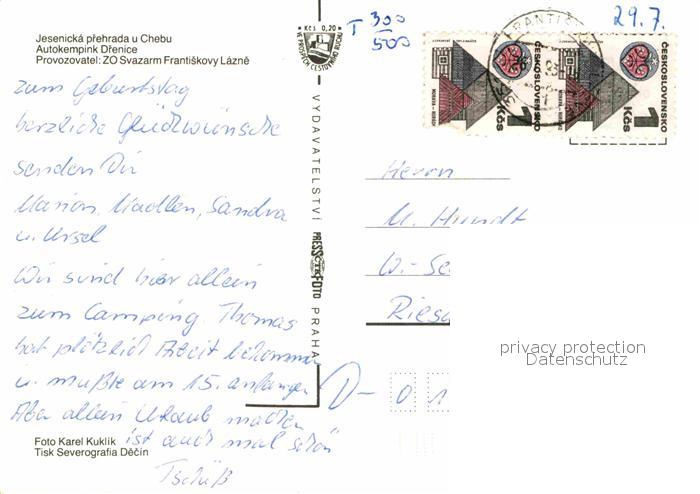 Jesenická přehrada u Chebu
Autokempink Dřenice
Provozovatel: ZO Svazarm Františkovy Lázně
Kčs 0,20
VE PROSPĚCH CESTOVNÍHO RUCHU
T 300
500
29.7.
FRANTIŠ
ČESKOSLOVENSKO
1 Kčs
ČESKOSLOVENSKO
1 Kčs
zum Geburtstag
herzliche Glückwünsche
senden Dir
Marion, Madlen, Sandra
u. Ursel
Wir sind hier allein
zum Camping. Thomas
hat plötzlich Arbeit bekommen
u. mußte am 15. anfangen
Aber allein Urlaub machen
ist auch mal schön
Tschüß
VYDAVATELSTVÍ PRESSFOTO PRAHA
Herrn
M. Hundt
W.-Se
Riesa
D- 0 1
privacy protection
Datenschutz
Foto Karel Kuklík
Tisk Severografia Děčín